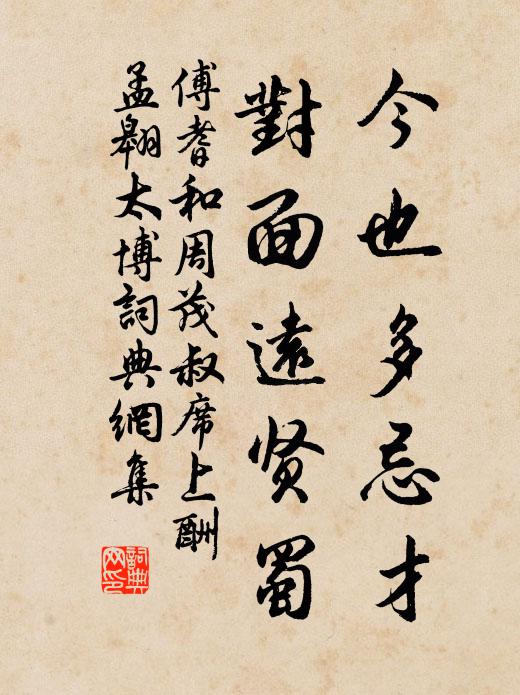 今也多忌才
對面遠贤蜀
傅耆和周茂叔席上酬
孟翱太博詞典網集
詞典網印